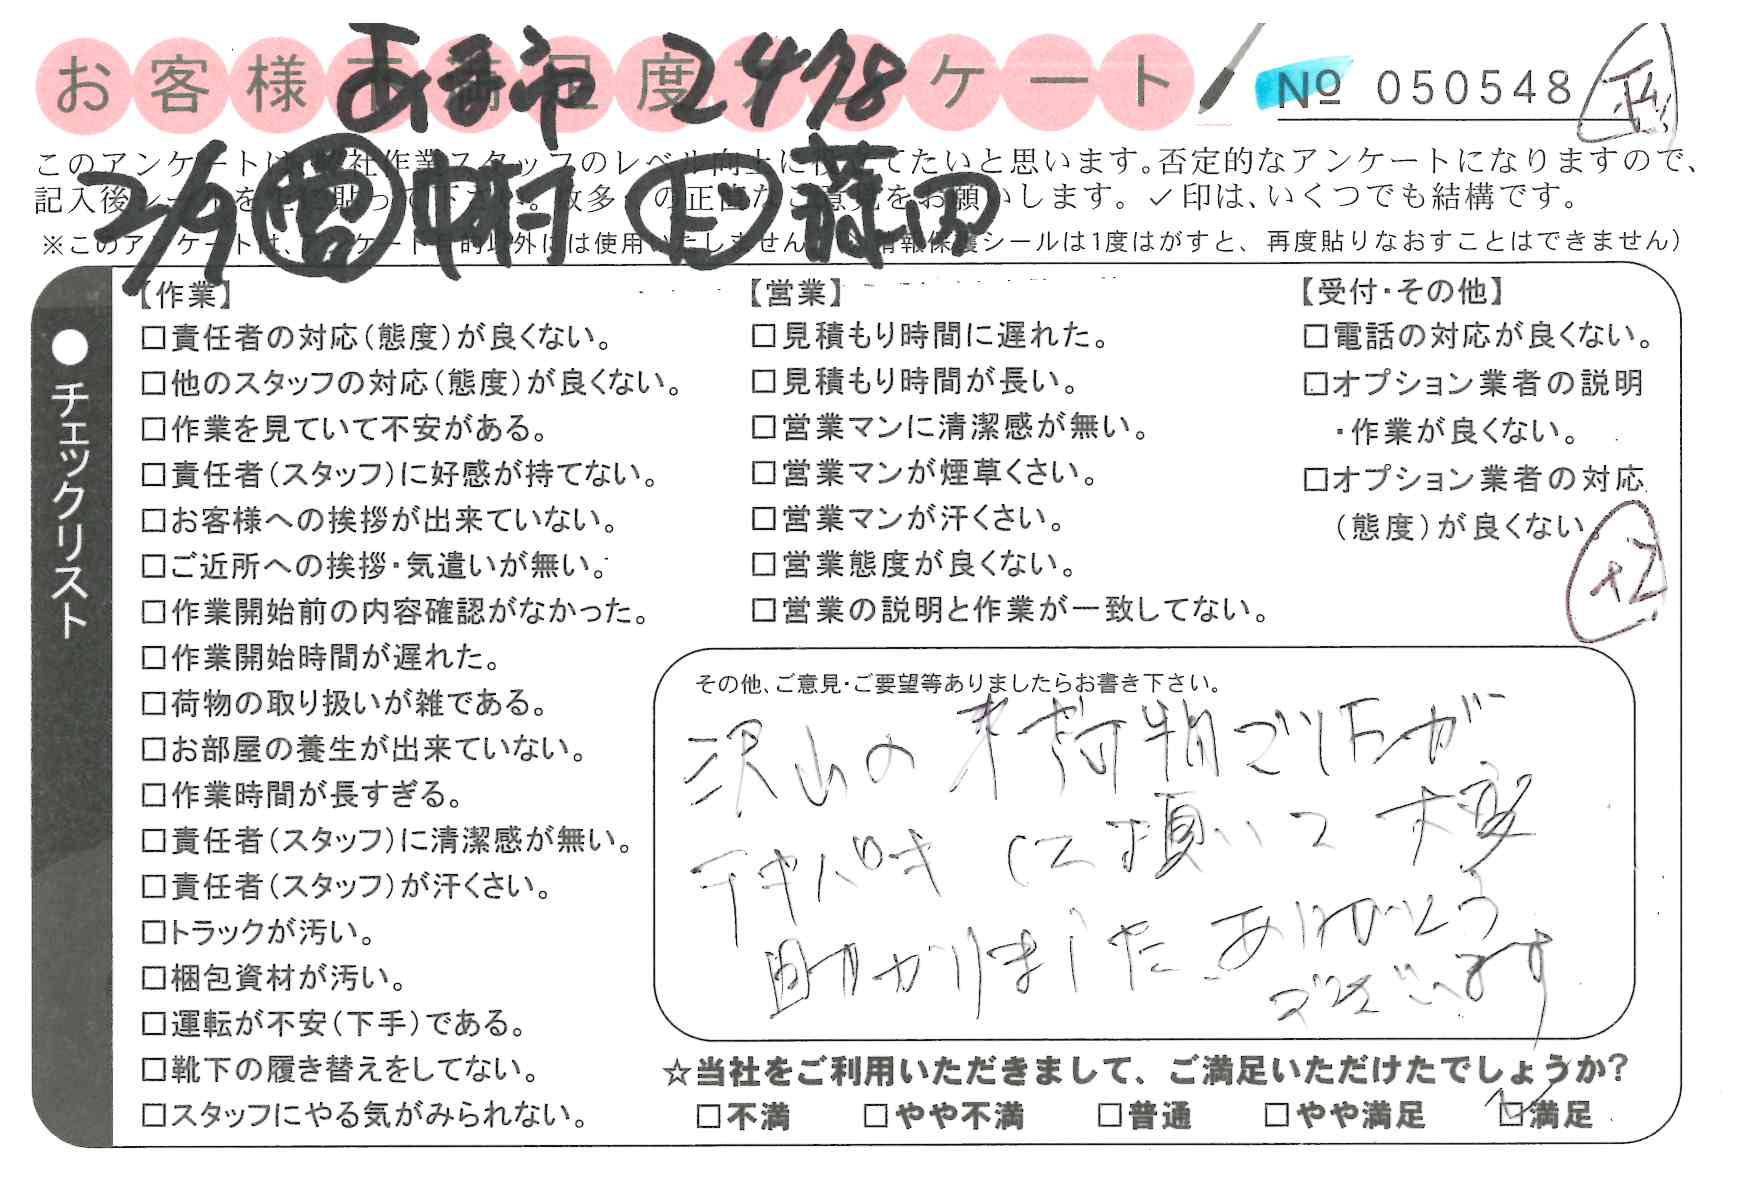 お客様不満足度アンケート
あま市 2478
№ 050548
このアンケートは、当社作業スタッフのレベル向上に役立てたいと思います。否定的なアンケートになりますので、
記入後シールを上に貼って下さい。数多くの正直なご意見をお願いします。✓印は、いくつでも結構です。
2/9 営 中村 正 藤田
※このアンケートは、アンケート目的以外には使用いたしません。(情報保護シールは1度はがすと、再度貼りなおすことはできません)
●チェックリスト
【作業】
□責任者の対応(態度)が良くない。
□他のスタッフの対応(態度)が良くない。
□作業を見ていて不安がある。
□責任者(スタッフ)に好感が持てない。
□お客様への挨拶が出来ていない。
□ご近所への挨拶・気遣いが無い。
□作業開始前の内容確認がなかった。
□作業開始時間が遅れた。
□荷物の取り扱いが雑である。
□お部屋の養生が出来ていない。
□作業時間が長すぎる。
□責任者(スタッフ)に清潔感が無い。
□責任者(スタッフ)が汗くさい。
□トラックが汚い。
□梱包資材が汚い。
□運転が不安(下手)である。
□靴下の履き替えをしてない。
□スタッフにやる気がみられない。
【営業】
□見積もり時間に遅れた。
□見積もり時間が長い。
□営業マンに清潔感が無い。
□営業マンが煙草くさい。
□営業マンが汗くさい。
□営業態度が良くない。
□営業の説明と作業が一致してない。
【受付・その他】
□電話の対応が良くない。
□オプション業者の説明
・作業が良くない。
□オプション業者の対応
(態度)が良くない。
+2
その他、ご意見・ご要望等ありましたらお書き下さい。
沢山の本荷物でしたが
テキパキして頂いて大変
助かりましたありがとう
ございます
☆当社をご利用いただきまして、ご満足いただけたでしょうか?
□不満 □やや不満 □普通 □やや満足 ☑満足